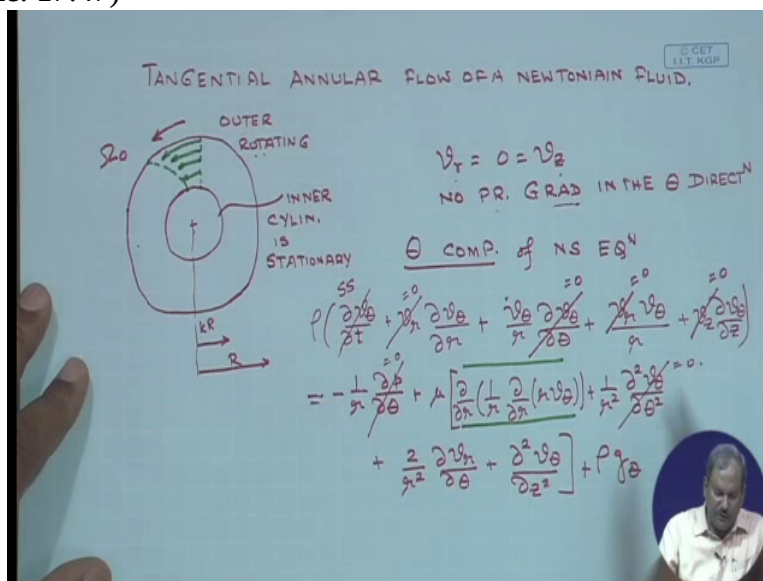 © CET
I.I.T. KGP
TANGENTIAL ANNULAR FLOW OF A NEWTONIAIN FLUID.
Ω0
OUTER
ROTATING
INNER
CYLIN.
IS
STATIONARY
kR
R
𝜗r = 0 = 𝜗z
NO PR. GRAD IN THE Θ DIRECTᴺ
Θ COMP. of NS EQᴺ
SS =0 =0 =0 =0
ρ(∂𝜗θ/∂t + 𝜗r ∂𝜗θ/∂r + 𝜗θ/r ∂𝜗θ/∂θ + 𝜗r𝜗θ/r + 𝜗z ∂𝜗θ/∂z)
= - 1/r ∂p/∂θ =0 + μ[∂/∂r(1/r ∂/∂r(r𝜗θ)) + 1/r² ∂²𝜗θ/∂θ² =0.
+ 2/r² ∂𝜗r/∂θ + ∂²𝜗θ/∂z²] + ρgθ